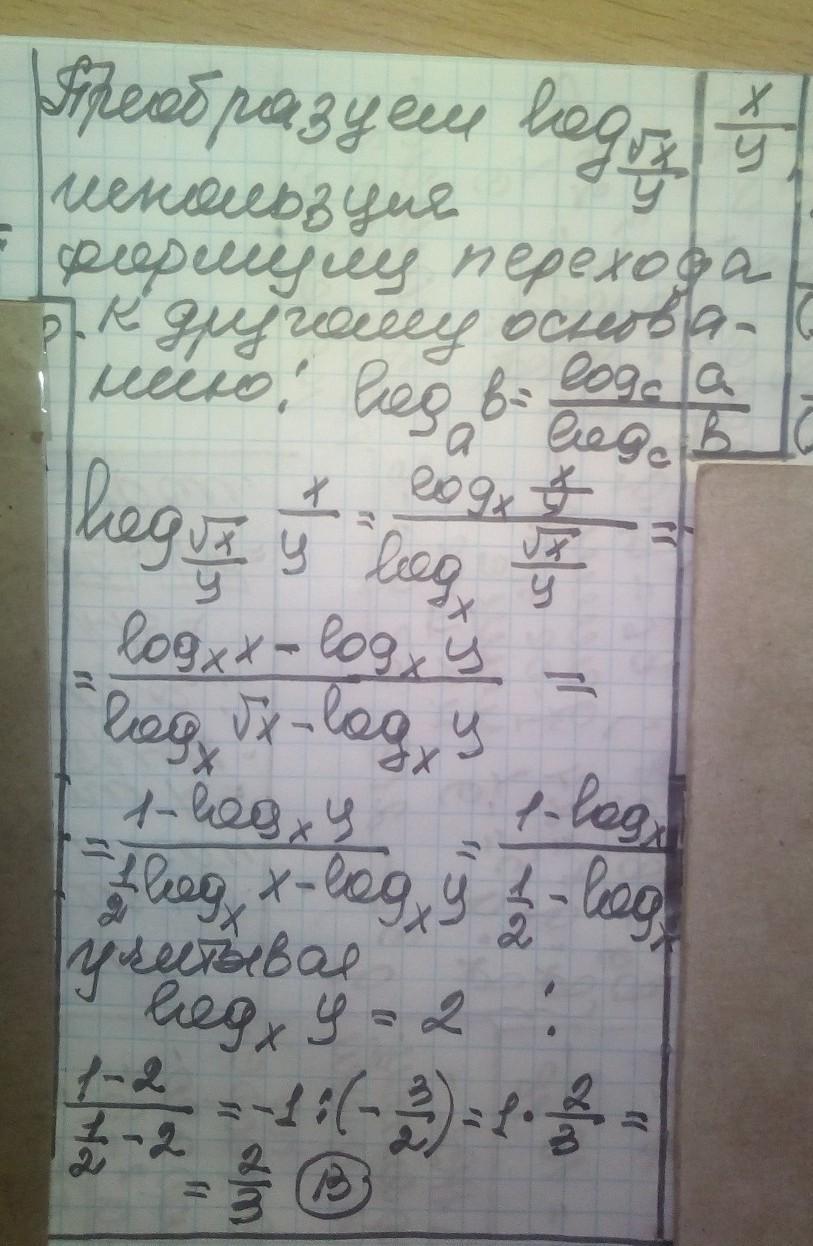 Преобразуем log_{√x/y} x/y,
используя
формулу перехода
к другому основа-
нию: log_a b = log_c a / log_c b
log_{√x/y} x/y = log_x x/y / log_x √x/y =
= (log_x x - log_x y) / (log_x √x - log_x y) =
= (1 - log_x y) / (1/2 log_x x - log_x y) = (1 - log_x) / (1/2 - log_x)
учитывая
log_x y = 2 :
(1 - 2) / (1/2 - 2) = -1 : (- 3/2) = 1 · 2/3 =
= 2/3 В